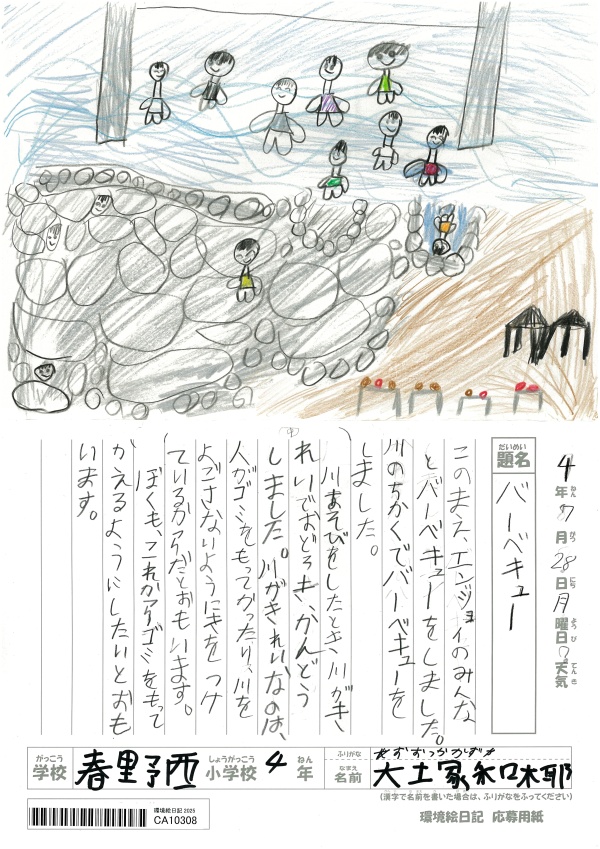 4年7月28日月曜日?天気
ねん がつ にち ようび てんき
だいめい
題名 バーベキュー
このまえ、エンジョイのみんな
とバーベキューをしました。
川のちかくでバーベキューを
しました。
川あそびをしたとき、川がき
れいでおどろき、かんどう
しました。川がきれいなのは、
人がゴミをもってかったり、川を
よごさないようにきをつけ
ているからだとおもいます。
ぼくも、これからゴミをもって
かえるようにしたいとおも
います。
がっこう しょうがっこう ねん
学校 春野西 小学校 4 年
ふりがな おおつかかずや
なまえ
名前 大塚和椰
(漢字で名前を書いた場合は、ふりがなをふってください)
環境絵日記 2025
CA10308
環境絵日記 応募用紙